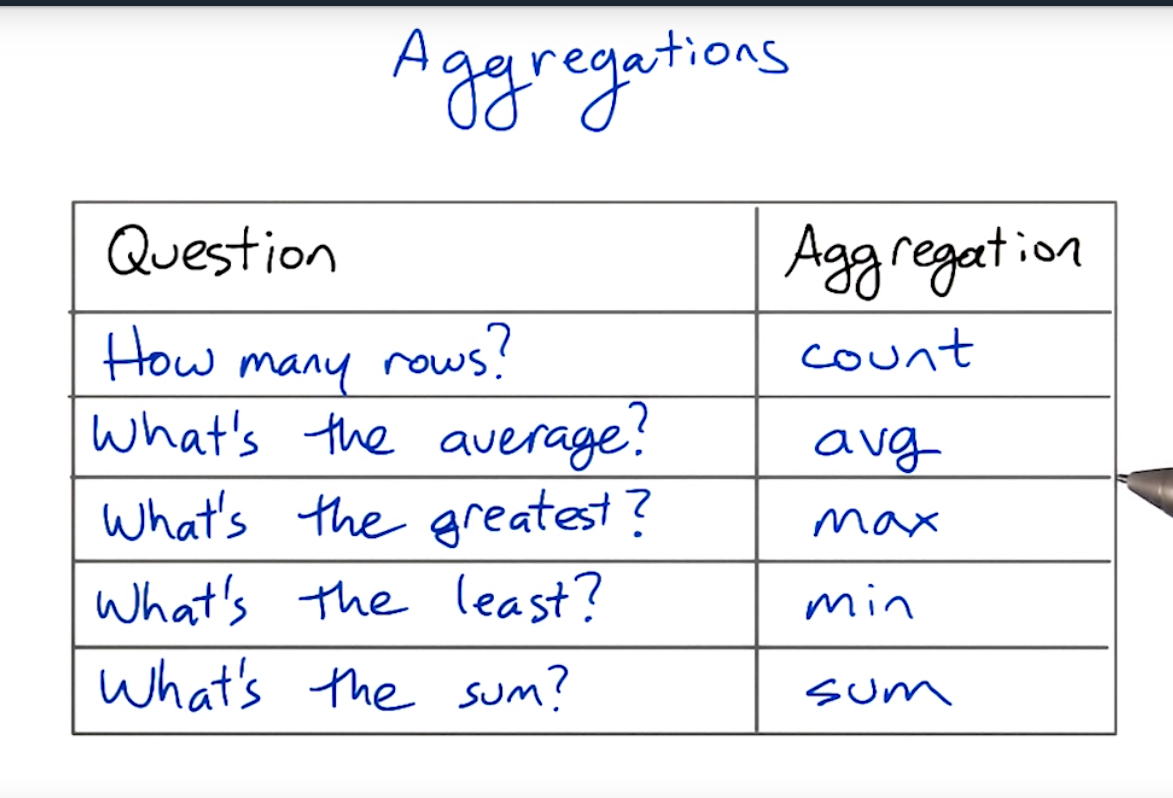 Aggregations
Question Aggregation
How many rows? count
What's the average? avg
What's the greatest? max
What's the least? min
What's the sum? sum